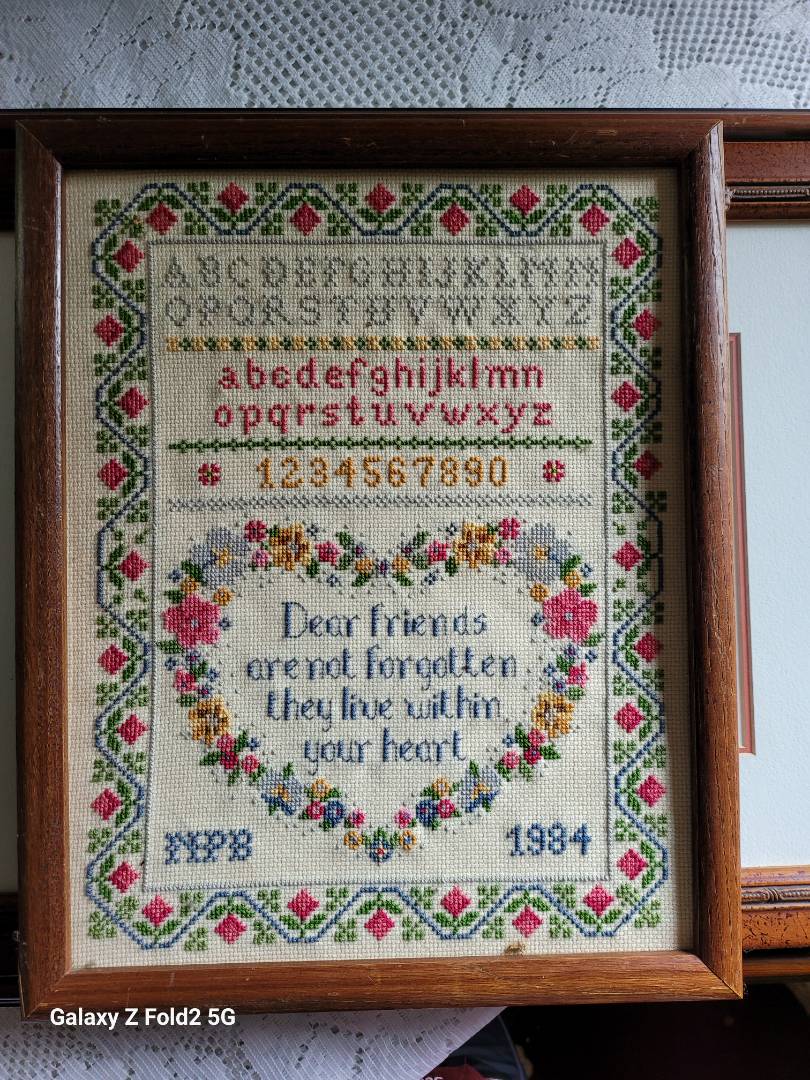 ABCDEFGHIJKLMN
OPQRSTUVWXYZ
abcdefghijklmn
opqrstuvwxyz
1234567890
Dear friends
are not forgotten
they live within
your heart
MPB 1984
Galaxy Z Fold2 5G